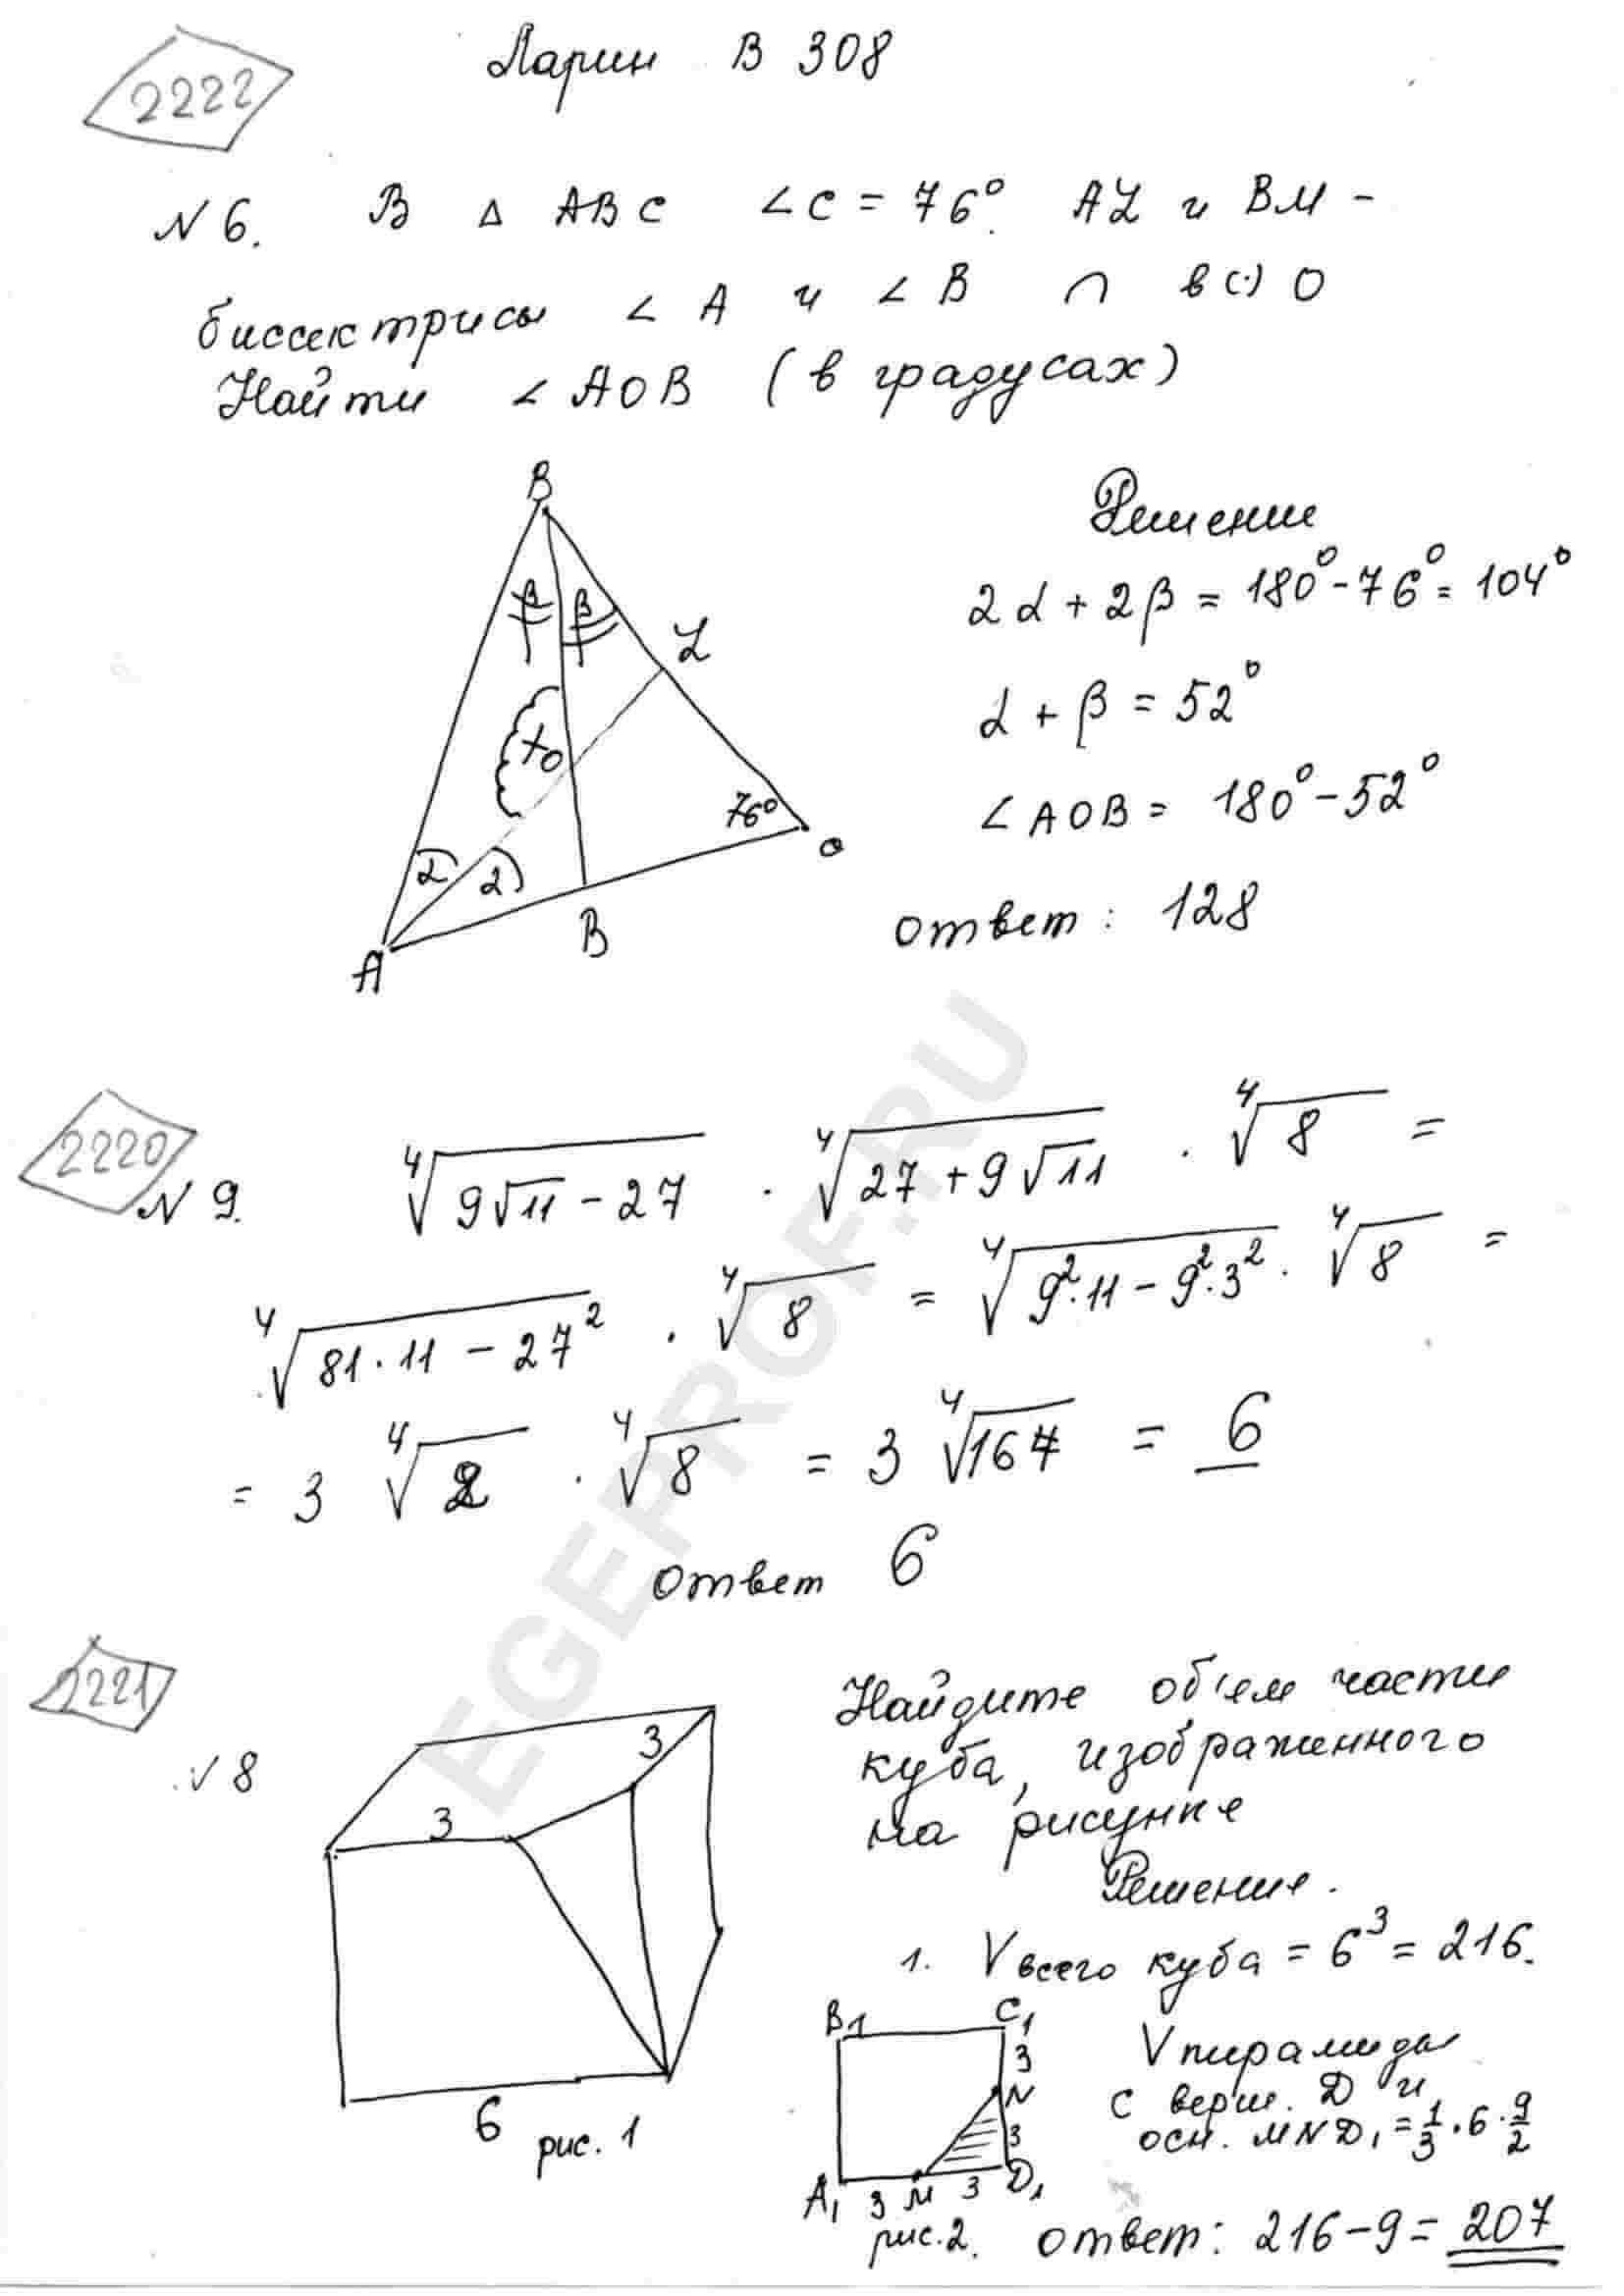 2222
Ларин В 308
N 6. В Δ ABC ∠C = 76°. AL и BM -
биссектрисы ∠ A и ∠ B ∩ в (·) O
Найти ∠ AOB (в градусах)
B
Решение
β β
2α + 2β = 180° - 76° = 104°
L
α + β = 52°
O
76°
∠AOB = 180° - 52°
α α
B
A
ответ: 128
2220
N 9. ∜(9√11 - 27) · ∜(27 + 9√11) · ∜8 =
∜(81·11 - 27²) · ∜8 = ∜(9²·11 - 9²·3²) · ∜8 =
= 3 ∜2 · ∜8 = 3 ∜16 = 6
ответ 6
2221
N 8
3
3
6
рис. 1
Найдите объем части
куба, изображенного
на рисунке
Решение.
1. V всего куба = 6³ = 216.
B₁ C₁
3
N
3
A₁ 3 M 3 D₁
рис. 2.
V пирамиды
с верш. D и
осн. MND₁ = 1/3 · 6 · 9/2
ответ: 216 - 9 = 207
EGEPROF.RU